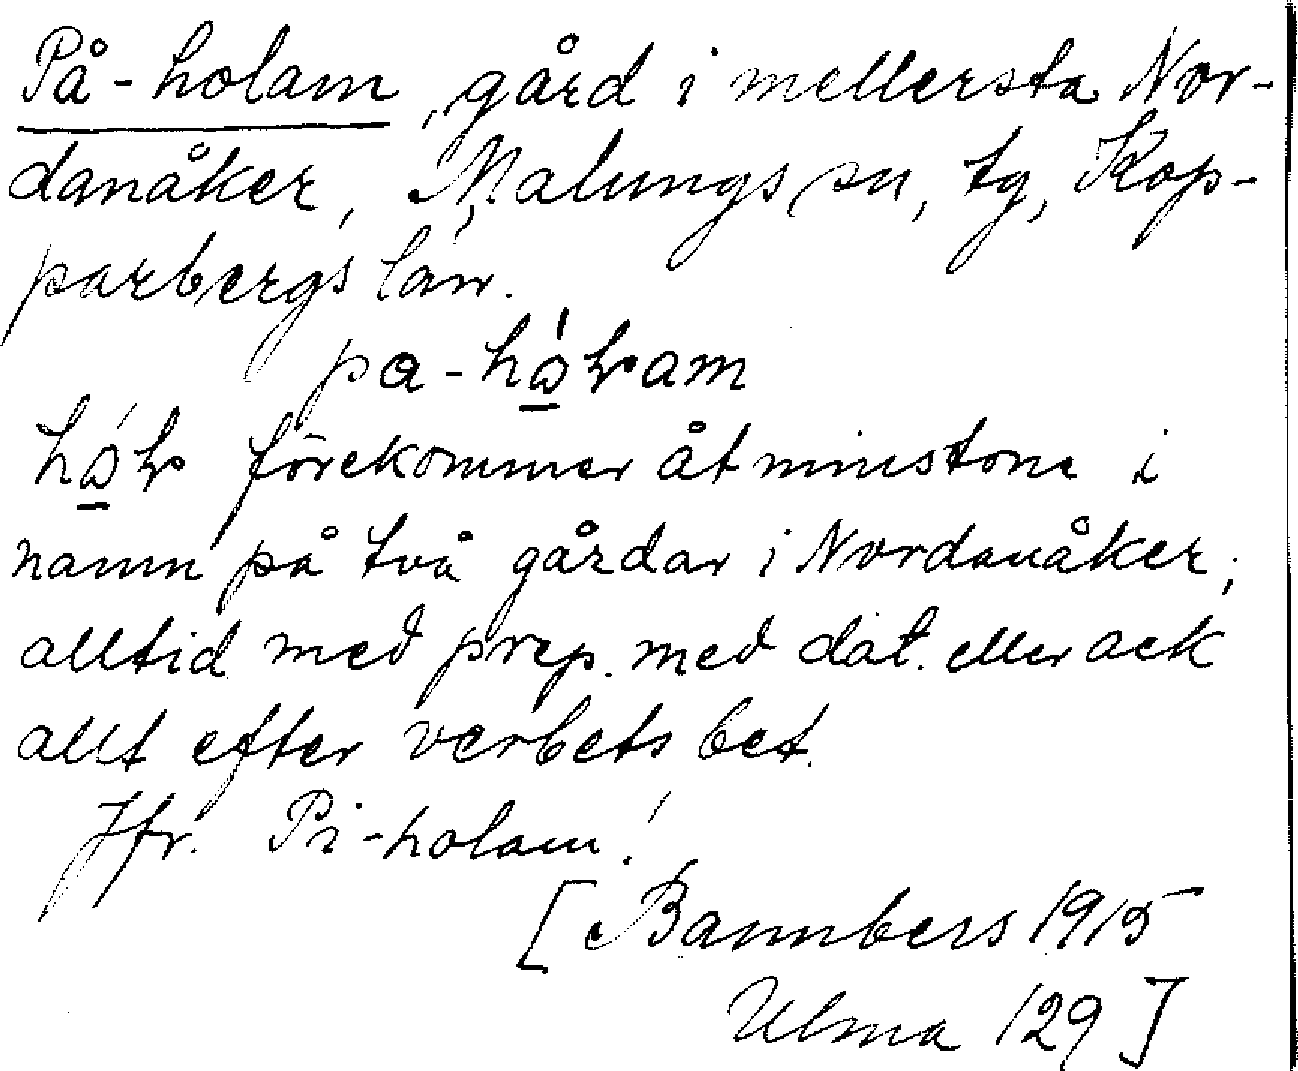 På-holam, gård i mellersta Nor-
danåker, Malungs sn, tg, Kop-
parbergs län.
pa-hɷ̲́ɽam
hɷ̲́ɽ förekommer åtminstone i
namn på två gårdar i Nordanåker,
alltid med prep. med dat. eller ack
allt efter verbets bet.
Jfr. Pi-holam!
[Bannbers 1915
Ulma 129]